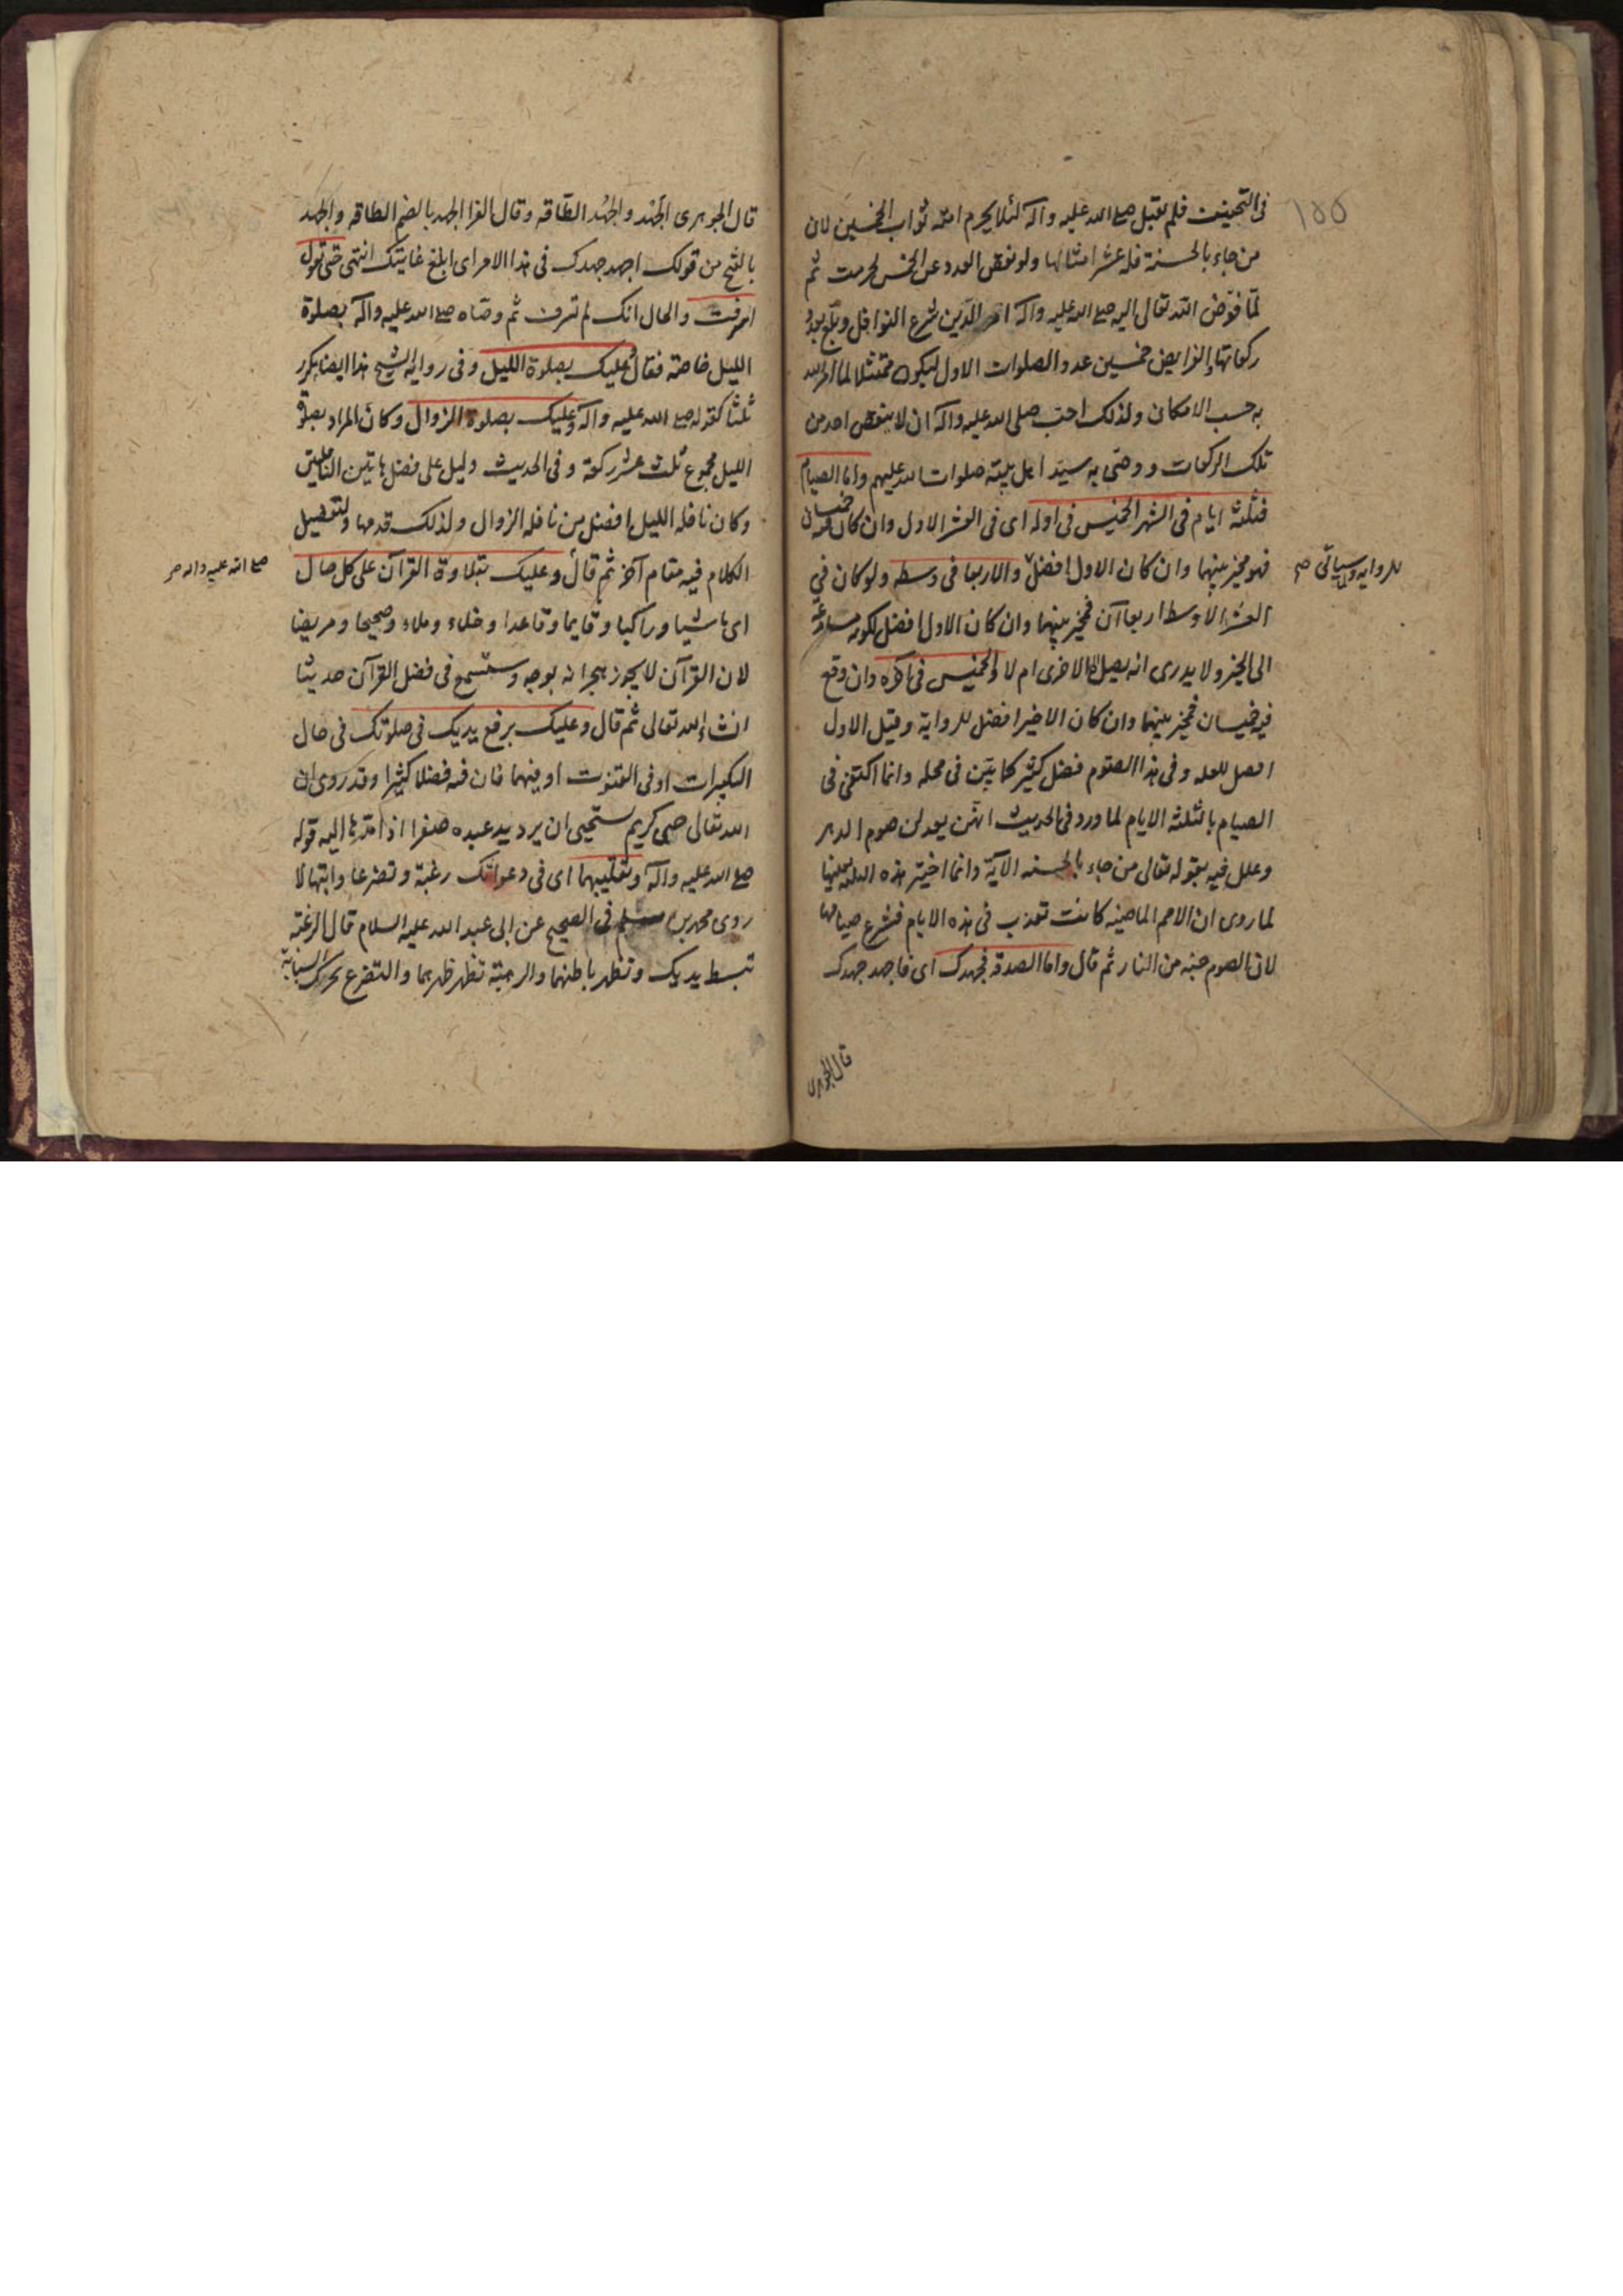 في التخفيف فلم يقبل صلع الله عليه وآله لئلا يحرم امته ثواب الخمسين لان
من جاء بالحسنة فله عشر امثالها ولو نقص العدد عن الخمس لحرمت ثم
لما فوّض الله تعالى اليه صلع الله عليه وآله امر الدّين شرع النوافل وبلّغ بعدد
ركوعاتها الفرايض خمسين عدد الصلوات الاول ليكون ممتثلا لما امر الله
به حسب الامكان ولذلك احبّ صلى الله عليه وآله ان لا ينقص احد من
تلك الركعات ووصّى به سيّد اهل بيته صلوات الله عليهم واما الصيام
فثلثة ايام في الشهر الخميس في اوله اى في العشر الاول وان كان فيه خميسان
فهو مخيّر بينهما وان كان الاول افضل والاربعا في وسطه ولو كان في
للرواية ولما سيأتي صح
العشر الاوسط اربعاآن فمخير بينهما وان كان الاول افضل لكونه مسارعة
الى الخير ولا يدرى انه يصل الى الاخرى ام لا والخميس في آخره وان وقع
فيه خميسان فمخير بينهما وان كان الاخير افضل للرواية وقيل الاول
افضل للعلة وفي هذا الصوم فضل كثير كما يبيّن في محله وانما اكتفى في
الصيام بالثلثة الايام لما ورد في الحديث انهن يعدلن صوم الدهر
وعلل فيه بقوله تعالى من جاء بالحسنه الآية وانما اختير هذه الثلثة بعينها
لما روى ان الامم الماضيه كانت تعذب في هذه الايام فشرع صيامها
لان الصوم جنه من النار ثم قال واما الصدقة فجهدك اى فاجهد جهدك
قال الجوهرى
قال الجوهرى الجَهد والجُهد الطّاقة وقال الفرا الجهد بالضم الطاقه والجهد
بالفتح من قولك اجهد جهدك في هذا الامر اى ابلغ غايتك انتهى حتى تقول
اسرفت والحال انك لم تسرف ثم وصّاه صلع الله عليه وآله بصلوة
الليل خاصة فقال وعليك بصلوة الليل وفي رواية الشيخ هذا ايضا مكرر
ثلثا كقوله صلع الله عليه وآله وعليك بصلوة الزوال وكان المراد بصلوة
الليل مجموع ثلث عشر ركعة وفي الحديث دليل على فضل هاتين النافلتين
وكان نافلة الليل افضل من نافلة الزوال ولذلك قدمها ولتفصيل
الكلام فيه مقام آخر ثم قال وعليك بتلاوة القرآن على كل حال
صلع الله عليه وآله صح
اى ماشيا وراكبا وقايما وقاعدا وخلاء وملاء وصحيحا ومريضا
لان القرآن لا يجوز هجرانه بوجه وستسمع في فضل القرآن حديثا
انشاء الله تعالى ثم قال وعليك برفع يديك في صلوتك في حال
التكبيرات او في القنوت او فيهما فان فيه فضلا كثيرا وقد روى ان
الله تعالى حيى كريم يستحيى ان يرد يد عبده صفرا اذا مدّها اليه قوله
صلع الله عليه وآله وتقليبهما اى في دعواتك رغبة وتضرعا وابتهالا
روى محمد بن مسلم في الصحيح عن ابى عبد الله عليه السلام قال الرغبة
تبسط يديك وتظهر باطنهما والرهبة تظهر ظهرهما والتضرع تحرك السبابة